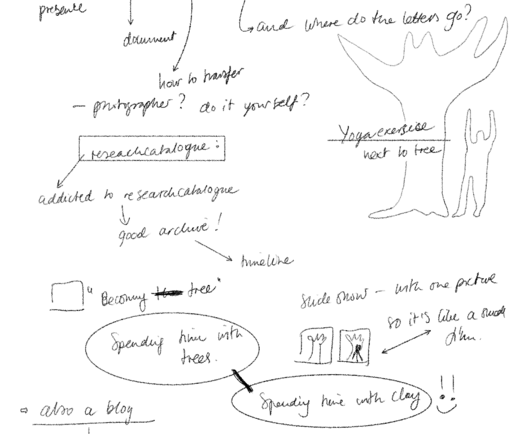 presence
document
and where do the letters go?
how to transfer
— photographer? do it yourself?
Yoga exercise
next to tree
reseachcatalogue:
addicted to researchcatalogue
good archive!
timeline
"Becoming tree"
slide show — with one picture
so it's like a small
film.
Spending time with
trees.
Spending time with clay !!
also a blog